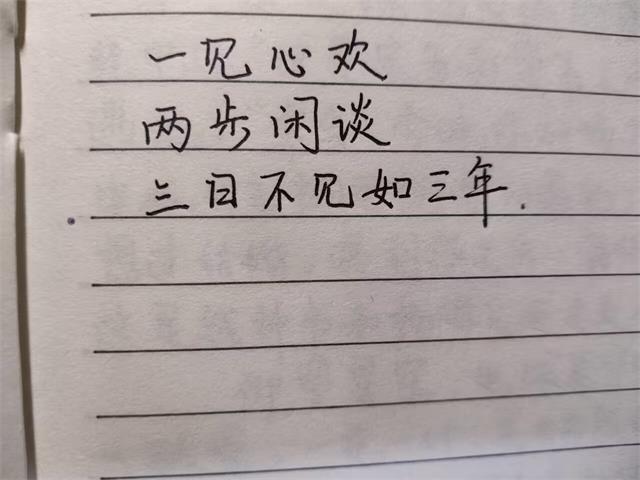 一见心欢
两步闲谈
三日不见如三年.